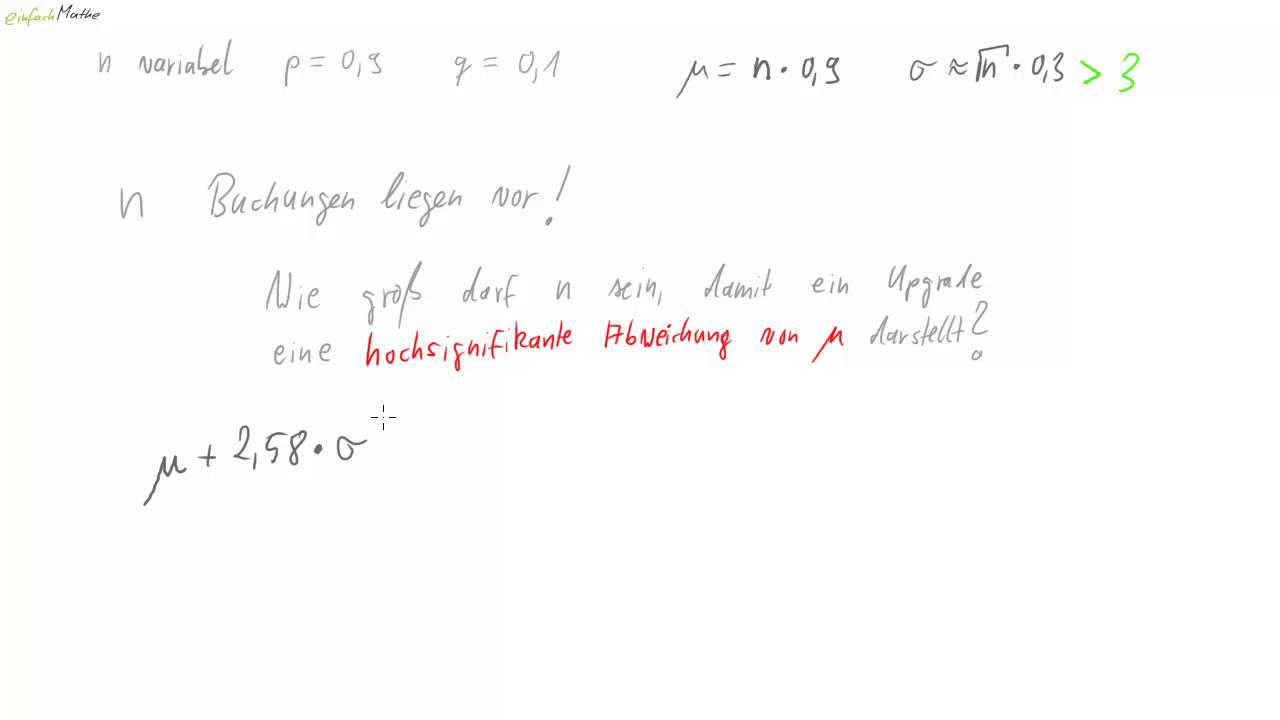 einfachMathe
n variabel p = 0,9 q = 0,1 μ = n · 0,9 σ ≈ √n · 0,3 > 3
n Buchungen liegen vor!
Wie groß darf n sein, damit ein Upgrade
eine hochsignifikante Abweichung von μ darstellt?
μ + 2,58 · σ